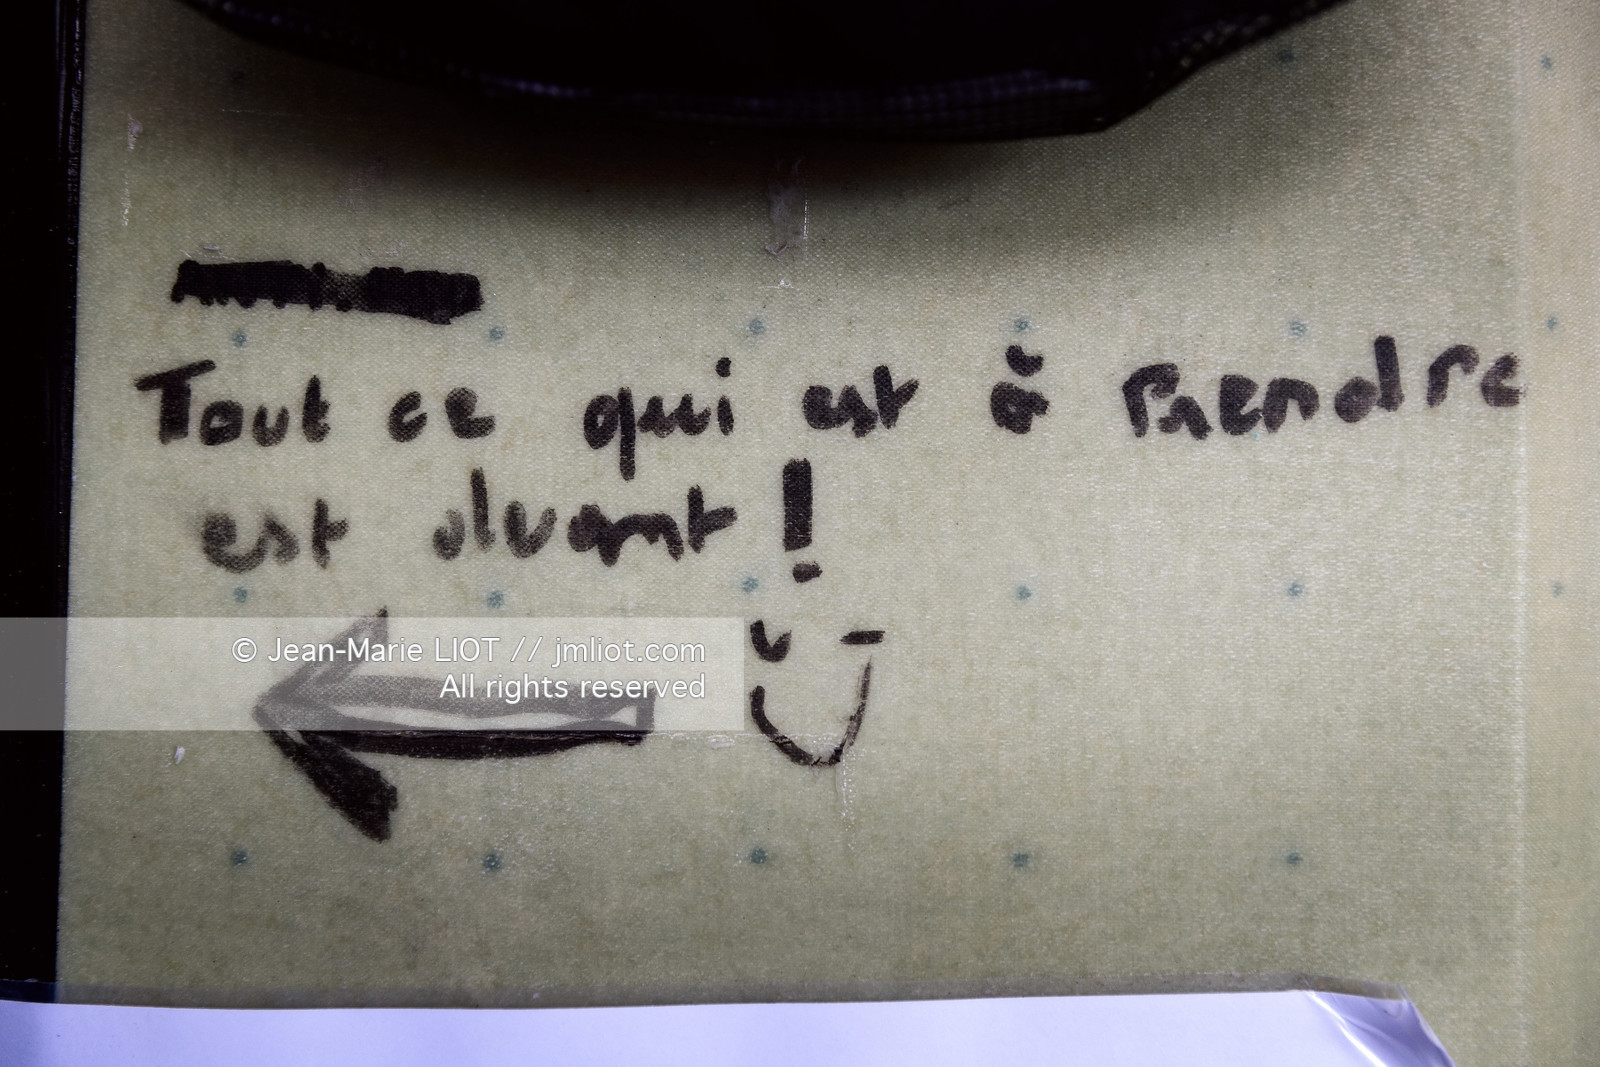 Tout ce qui est à Prendre
est dvant !
© Jean-Marie LIOT // jmliot.com
All rights reserved